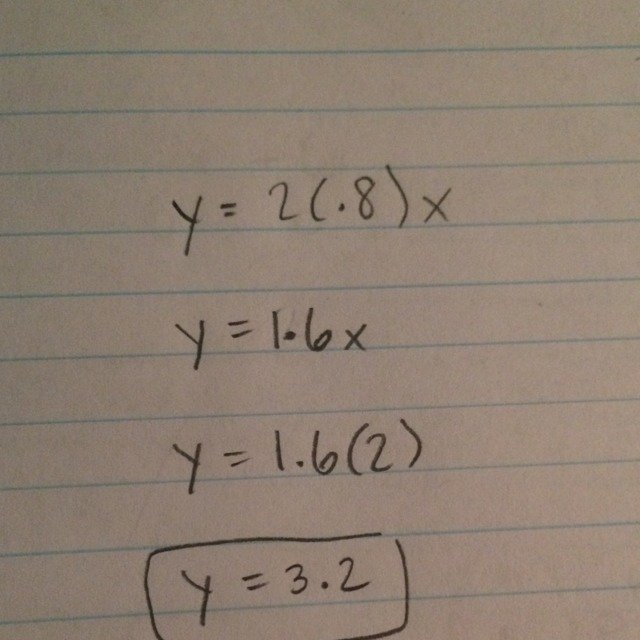 y = 2(.8)x
y = 1.6x
y = 1.6(2)
y = 3.2